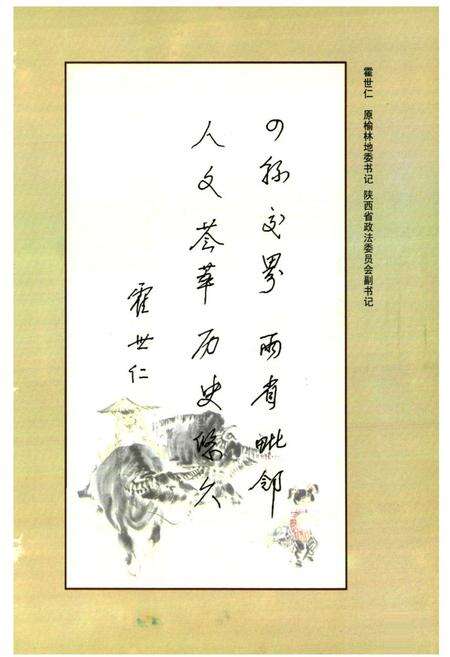 霍世仁 原榆林地委书记 陕西省政法委员会副书记
四县交界 两省毗邻
人文荟萃 历史悠久
霍世仁